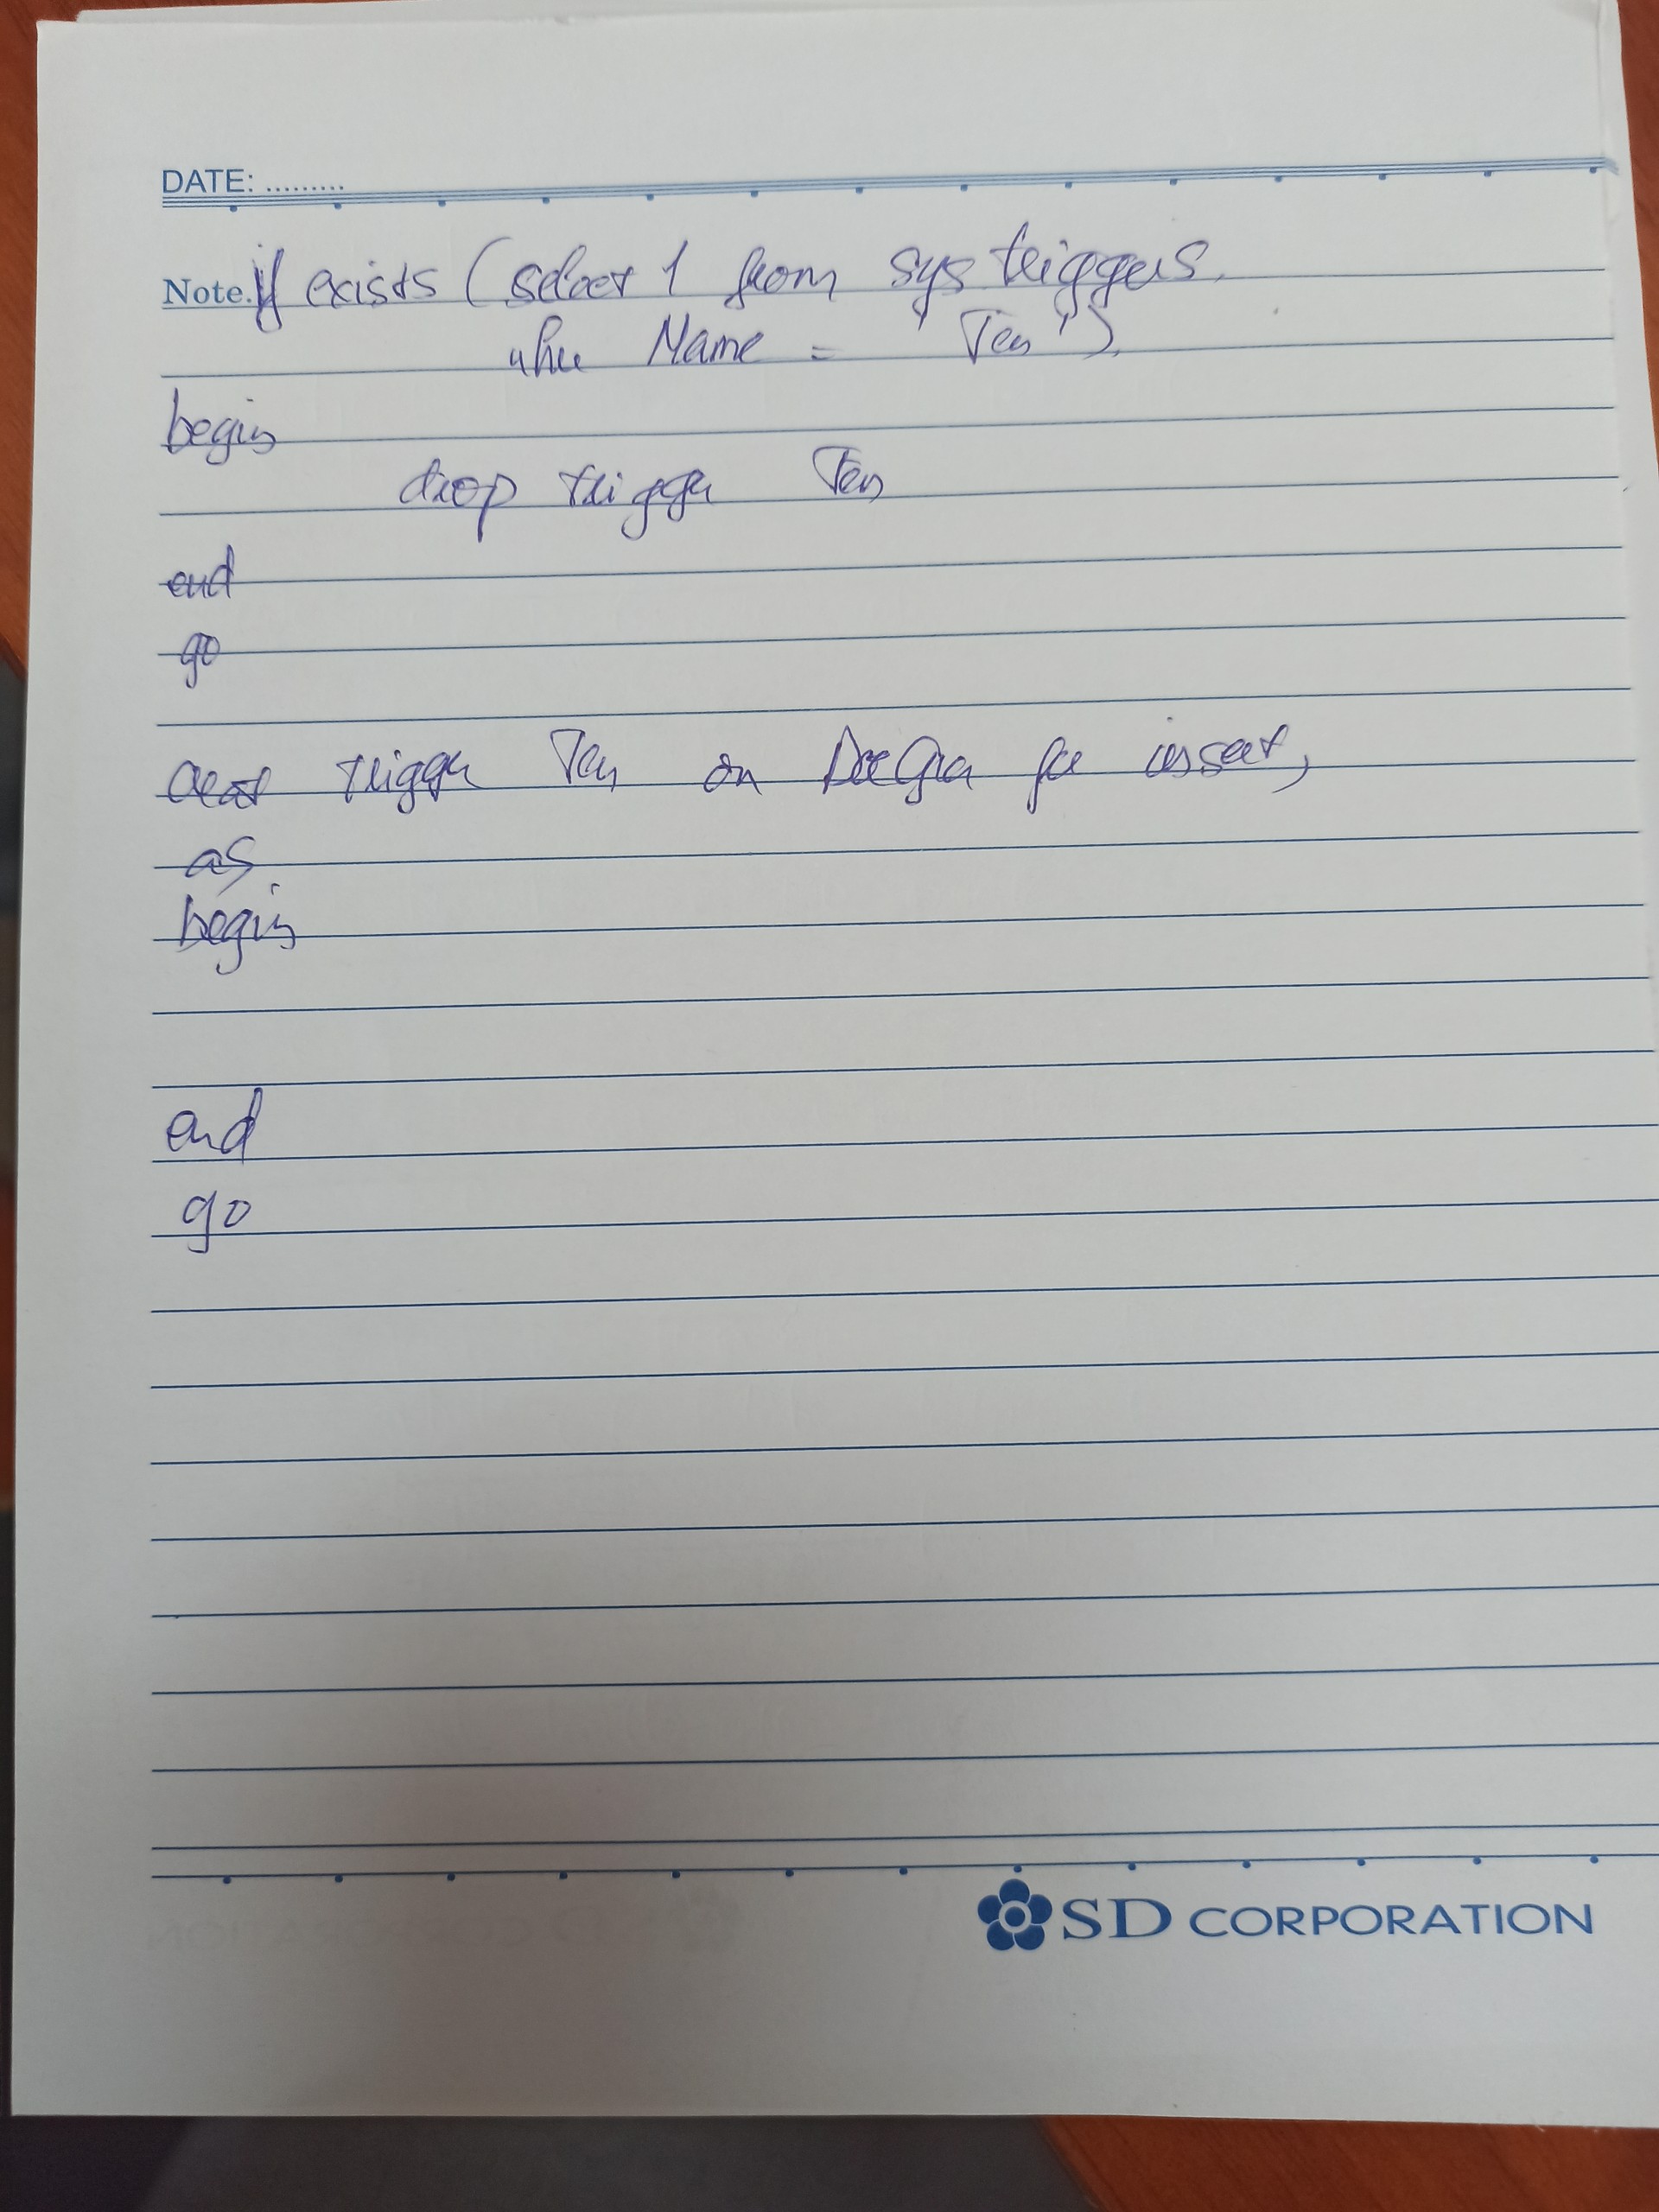 DATE: .........
Note. if exists (select 1 from sys triggers
where Name = 'Ten')
begin
drop trigger Ten
end
go
create trigger Ten on for insert,
as
begin
end
go
SD CORPORATION